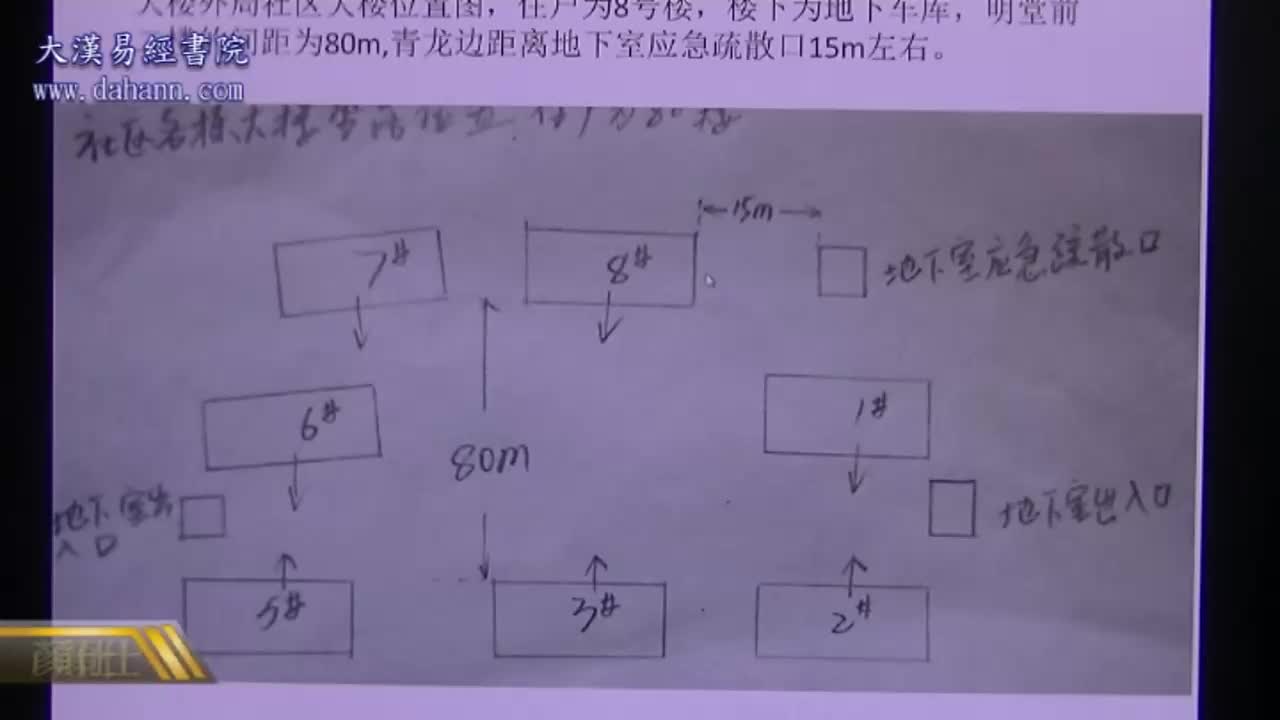 大楼外局社区大楼位置图，住户为8号楼，楼下为地下车库，明堂前
间距为80m,青龙边距离地下室应急疏散口15m左右。
大漢易經書院
www.dahann.com
社区各栋大楼
15m
7#
8#
地下室应急疏散口
6#
1#
80m
地下室出
入口
地下室出入口
5#
3#
2#